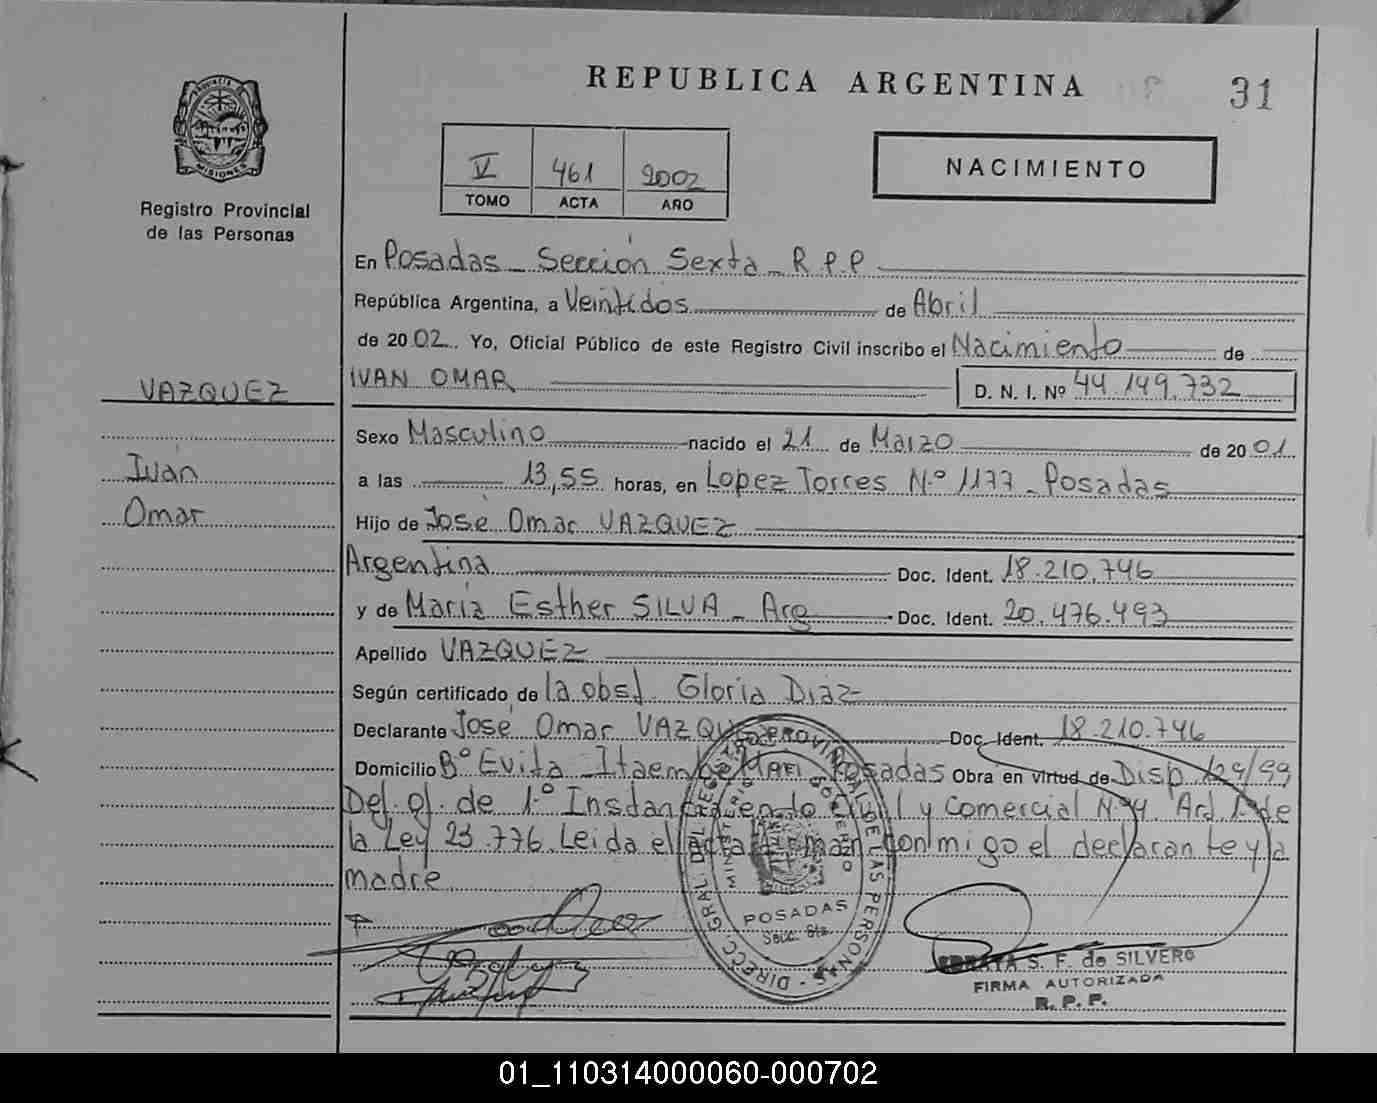 REPUBLICA ARGENTINA
31
PROVINCIA DE
MISIONES
Registro Provincial
de las Personas
V 461 2002
TOMO ACTA AÑO
NACIMIENTO
En Posadas - Sección Sexta - R.P.P
República Argentina, a Veintidos de Abril
de 2002. Yo, Oficial Público de este Registro Civil inscribo el Nacimiento de
VAZQUEZ
IVAN OMAR D. N. I. Nº 44.149.732
Sexo Masculino nacido el 21 de Marzo de 2001
Iván
a las 13,55 horas, en Lopez Torres N.º 1177 - Posadas
Omar
Hijo de José Omar VAZQUEZ
Argentina Doc. Ident. 18.210.746
y de María Esther SILVA - Arg Doc. Ident. 20.476.493
Apellido VAZQUEZ
Según certificado de la obst. Gloria Diaz
Declarante José Omar VAZQUEZ Doc. Ident. 18.210.746
Domicilio Bº Evita - Itaembé Mini Posadas Obra en virtud de Disp. 129/99
Def. of. de 1.º Instancia en lo Civil y Comercial Nº4. Art 1º de
la Ley 23.776. Leida el acta firman conmigo el declarante y la
madre
DIRECC. GRAL. DEL REGISTRO PROVINCIAL DE LAS PERSONAS
MINISTERIO DE GOBIERNO
POSADAS
Secc. 6ta.
S. F. de SILVERO
FIRMA AUTORIZADA
R. P. P.
01_110314000060-000702